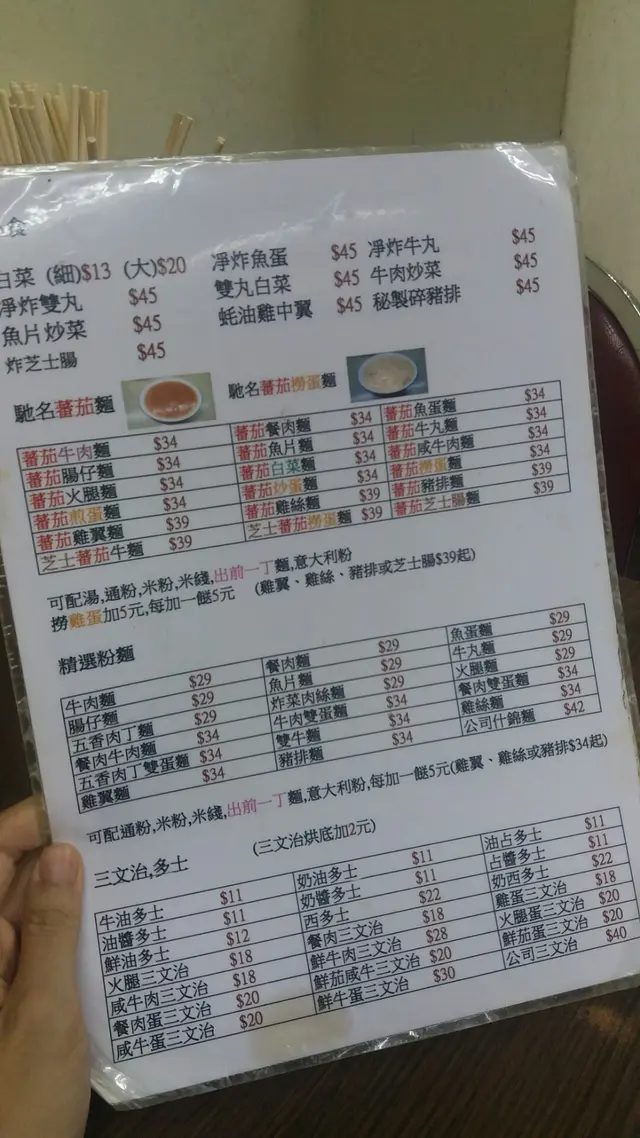 食
白菜 (細)$13 (大)$20 凈炸魚蛋 $45 凈炸牛丸 $45
凈炸雙丸 $45 雙丸白菜 $45 牛肉炒菜 $45
魚片炒菜 $45 蚝油雞中翼 $45 秘製碎豬排 $45
炸芝士腸 $45
馳名蕃茄麵 馳名蕃茄撈蛋麵
蕃茄牛肉麵 $34 蕃茄餐肉麵 $34 蕃茄魚蛋麵 $34
蕃茄腸仔麵 $34 蕃茄魚片麵 $34 蕃茄牛丸麵 $34
蕃茄火腿麵 $34 蕃茄白菜麵 $34 蕃茄咸牛肉麵 $34
蕃茄煎蛋麵 $34 蕃茄炒蛋麵 $34 蕃茄撈蛋麵 $34
蕃茄雞翼麵 $39 蕃茄雞絲麵 $39 蕃茄豬排麵 $39
芝士蕃茄牛麵 $39 芝士蕃茄撈蛋麵 $39 蕃茄芝士腸麵 $39
可配湯,通粉,米粉,米綫,出前一丁麵,意大利粉
撈雞蛋加5元,每加一餸5元 (雞翼、雞絲、豬排或芝士腸$39起)
精選粉麵
牛肉麵 $29 餐肉麵 $29 魚蛋麵 $29
腸仔麵 $29 魚片麵 $29 牛丸麵 $29
五香肉丁麵 $29 炸菜肉絲麵 $29 火腿麵 $29
餐肉牛肉麵 $34 牛肉雙蛋麵 $34 餐肉雙蛋麵 $34
五香肉丁雙蛋麵 $34 雙牛麵 $34 雞絲麵 $34
雞翼麵 $34 豬排麵 $34 公司什錦麵 $42
可配通粉,米粉,米綫,出前一丁麵,意大利粉,每加一餸5元(雞翼、雞絲或豬排$34起)
三文治,多士 (三文治烘底加2元)
牛油多士 $11 奶油多士 $11 油占多士 $11
油醬多士 $11 奶醬多士 $11 占醬多士 $11
鮮油多士 $12 西多士 $22 奶西多士 $22
火腿三文治 $18 餐肉三文治 $18 雞蛋三文治 $18
咸牛肉三文治 $18 鮮牛肉三文治 $28 火腿蛋三文治 $20
餐肉蛋三文治 $20 鮮茄咸牛三文治 $20 鮮茄蛋三文治 $20
咸牛蛋三文治 $20 鮮牛蛋三文治 $30 公司三文治 $40